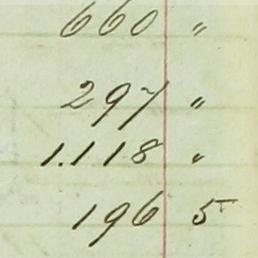 660 "
297 "
1.118 "
196 5